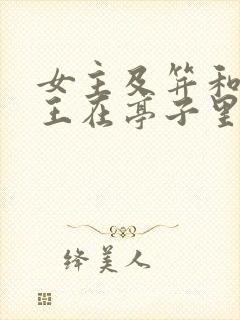 女主及笄和
王在亭子里
绛美人